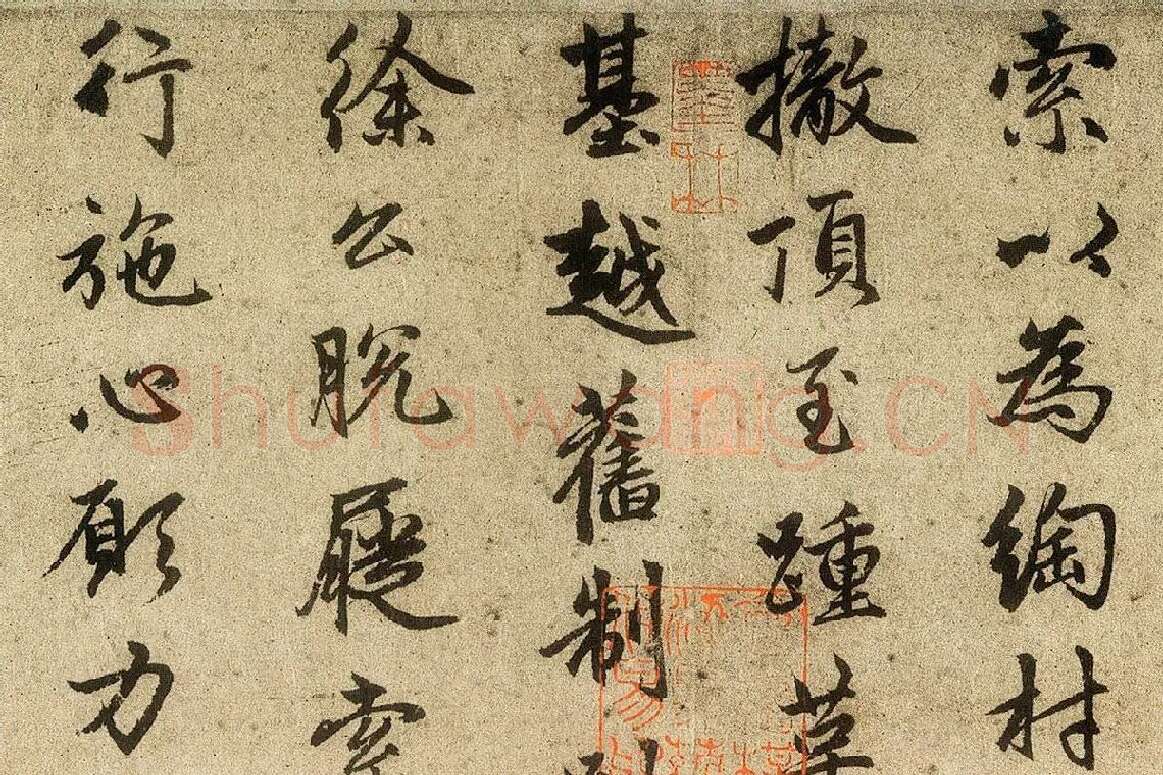 索以為綯材
撤頂至踵革
基越舊制
徐公脫屣
行施心願力
Shufawang.CN